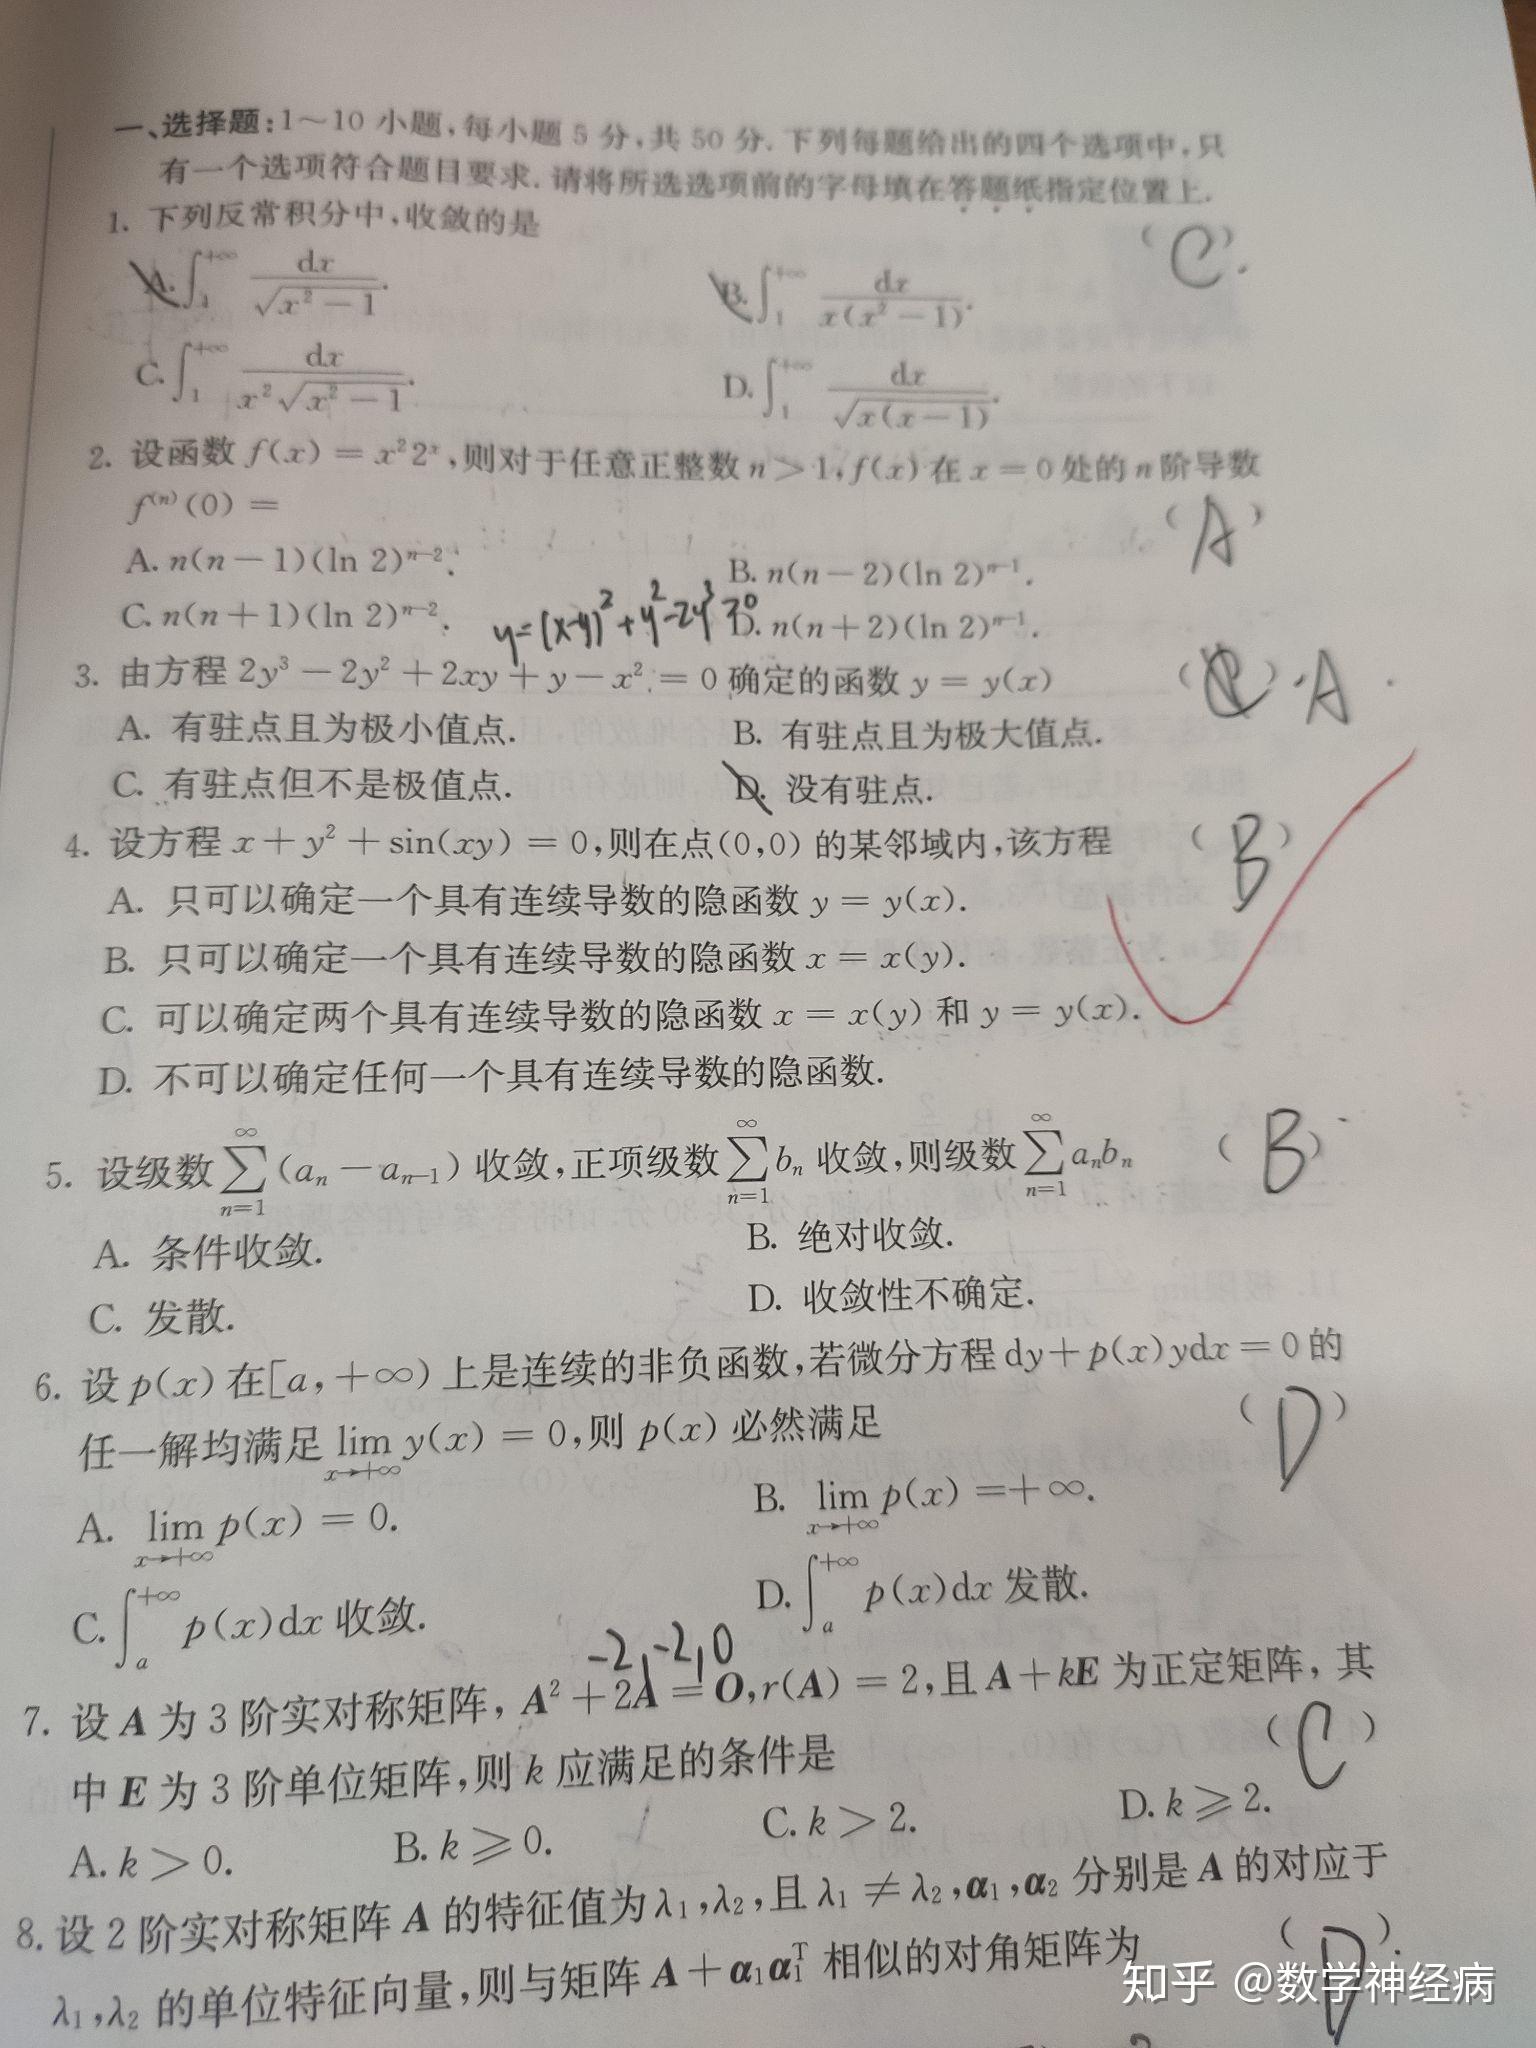 一、选择题:1～10 小题,每小题 5 分,共 50 分. 下列每题给出的四个选项中,只
有一个选项符合题目要求. 请将所选选项前的字母填在答题纸指定位置上.
1. 下列反常积分中,收敛的是 ( C ).
A. ∫₁^{+∞} dx/√(x²−1).
B. ∫₁^{+∞} dx/(x(x²−1)).
C. ∫₁^{+∞} dx/(x²√(x²−1)).
D. ∫₁^{+∞} dx/√(x(x−1)).
2. 设函数 f(x) = x²2ˣ,则对于任意正整数 n > 1, f(x) 在 x = 0 处的 n 阶导数
f⁽ⁿ⁾(0) = ( A )
A. n(n−1)(ln 2)ⁿ⁻².
B. n(n−2)(ln 2)ⁿ⁻¹.
C. n(n+1)(ln 2)ⁿ⁻².
y=(x-y)²+y²-2y³
D. n(n+2)(ln 2)ⁿ⁻¹.
3. 由方程 2y³ − 2y² + 2xy + y − x² = 0 确定的函数 y = y(x) ( ) A
A. 有驻点且为极小值点.
B. 有驻点且为极大值点.
C. 有驻点但不是极值点.
D. 没有驻点.
4. 设方程 x + y² + sin(xy) = 0,则在点(0,0) 的某邻域内,该方程 ( B )
A. 只可以确定一个具有连续导数的隐函数 y = y(x).
B. 只可以确定一个具有连续导数的隐函数 x = x(y).
C. 可以确定两个具有连续导数的隐函数 x = x(y) 和 y = y(x).
D. 不可以确定任何一个具有连续导数的隐函数.
5. 设级数 ∑_{n=1}^{∞} (aₙ − aₙ₋₁) 收敛,正项级数 ∑_{n=1}^{∞} bₙ 收敛,则级数 ∑_{n=1}^{∞} aₙbₙ ( B )
A. 条件收敛.
B. 绝对收敛.
C. 发散.
D. 收敛性不确定.
6. 设 p(x) 在[a, +∞) 上是连续的非负函数,若微分方程 dy + p(x)ydx = 0 的
任一解均满足 lim_{x→+∞} y(x) = 0,则 p(x) 必然满足 ( D )
A. lim_{x→+∞} p(x) = 0.
B. lim_{x→+∞} p(x) = +∞.
C. ∫ₐ^{+∞} p(x)dx 收敛.
D. ∫ₐ^{+∞} p(x)dx 发散.
-2, -2, 0
7. 设 A 为 3 阶实对称矩阵, A² + 2A = O, r(A) = 2,且 A + kE 为正定矩阵, 其
中 E 为 3 阶单位矩阵,则 k 应满足的条件是 ( C )
A. k > 0.
B. k ⩾ 0.
C. k > 2.
D. k ⩾ 2.
8. 设 2 阶实对称矩阵 A 的特征值为 λ₁, λ₂,且 λ₁ ≠ λ₂, α₁, α₂ 分别是 A 的对应于
λ₁, λ₂ 的单位特征向量,则与矩阵 A + α₁α₁ᵀ 相似的对角矩阵为 ( D ).
知乎 @数学神经病